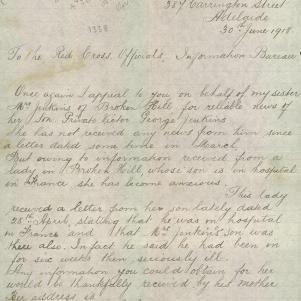 257 Carrington Street
Adelaide
30th June 1918.
1338
To the Red Cross Officials, Information Bureau
Once again I appeal to you on behalf of my sister
Mrs Jenkins of Broken Hill for reliable news of
her Son. Private Victor George Jenkins.
She has not received any news from him since
a letter dated some time in March,
But owing to information received from a
lady in Broken Hill, whose son is in hospital
in France she has become anxious.
This lady
received a letter from her son lately dated
28th April, stating that he was in hospital
in France and that Mrs Jenkin's son was
there also. In fact he said he had been in
for six weeks then seriously ill.
Any information you could obtain for her
would be thankfully received by his mother
Her address is: